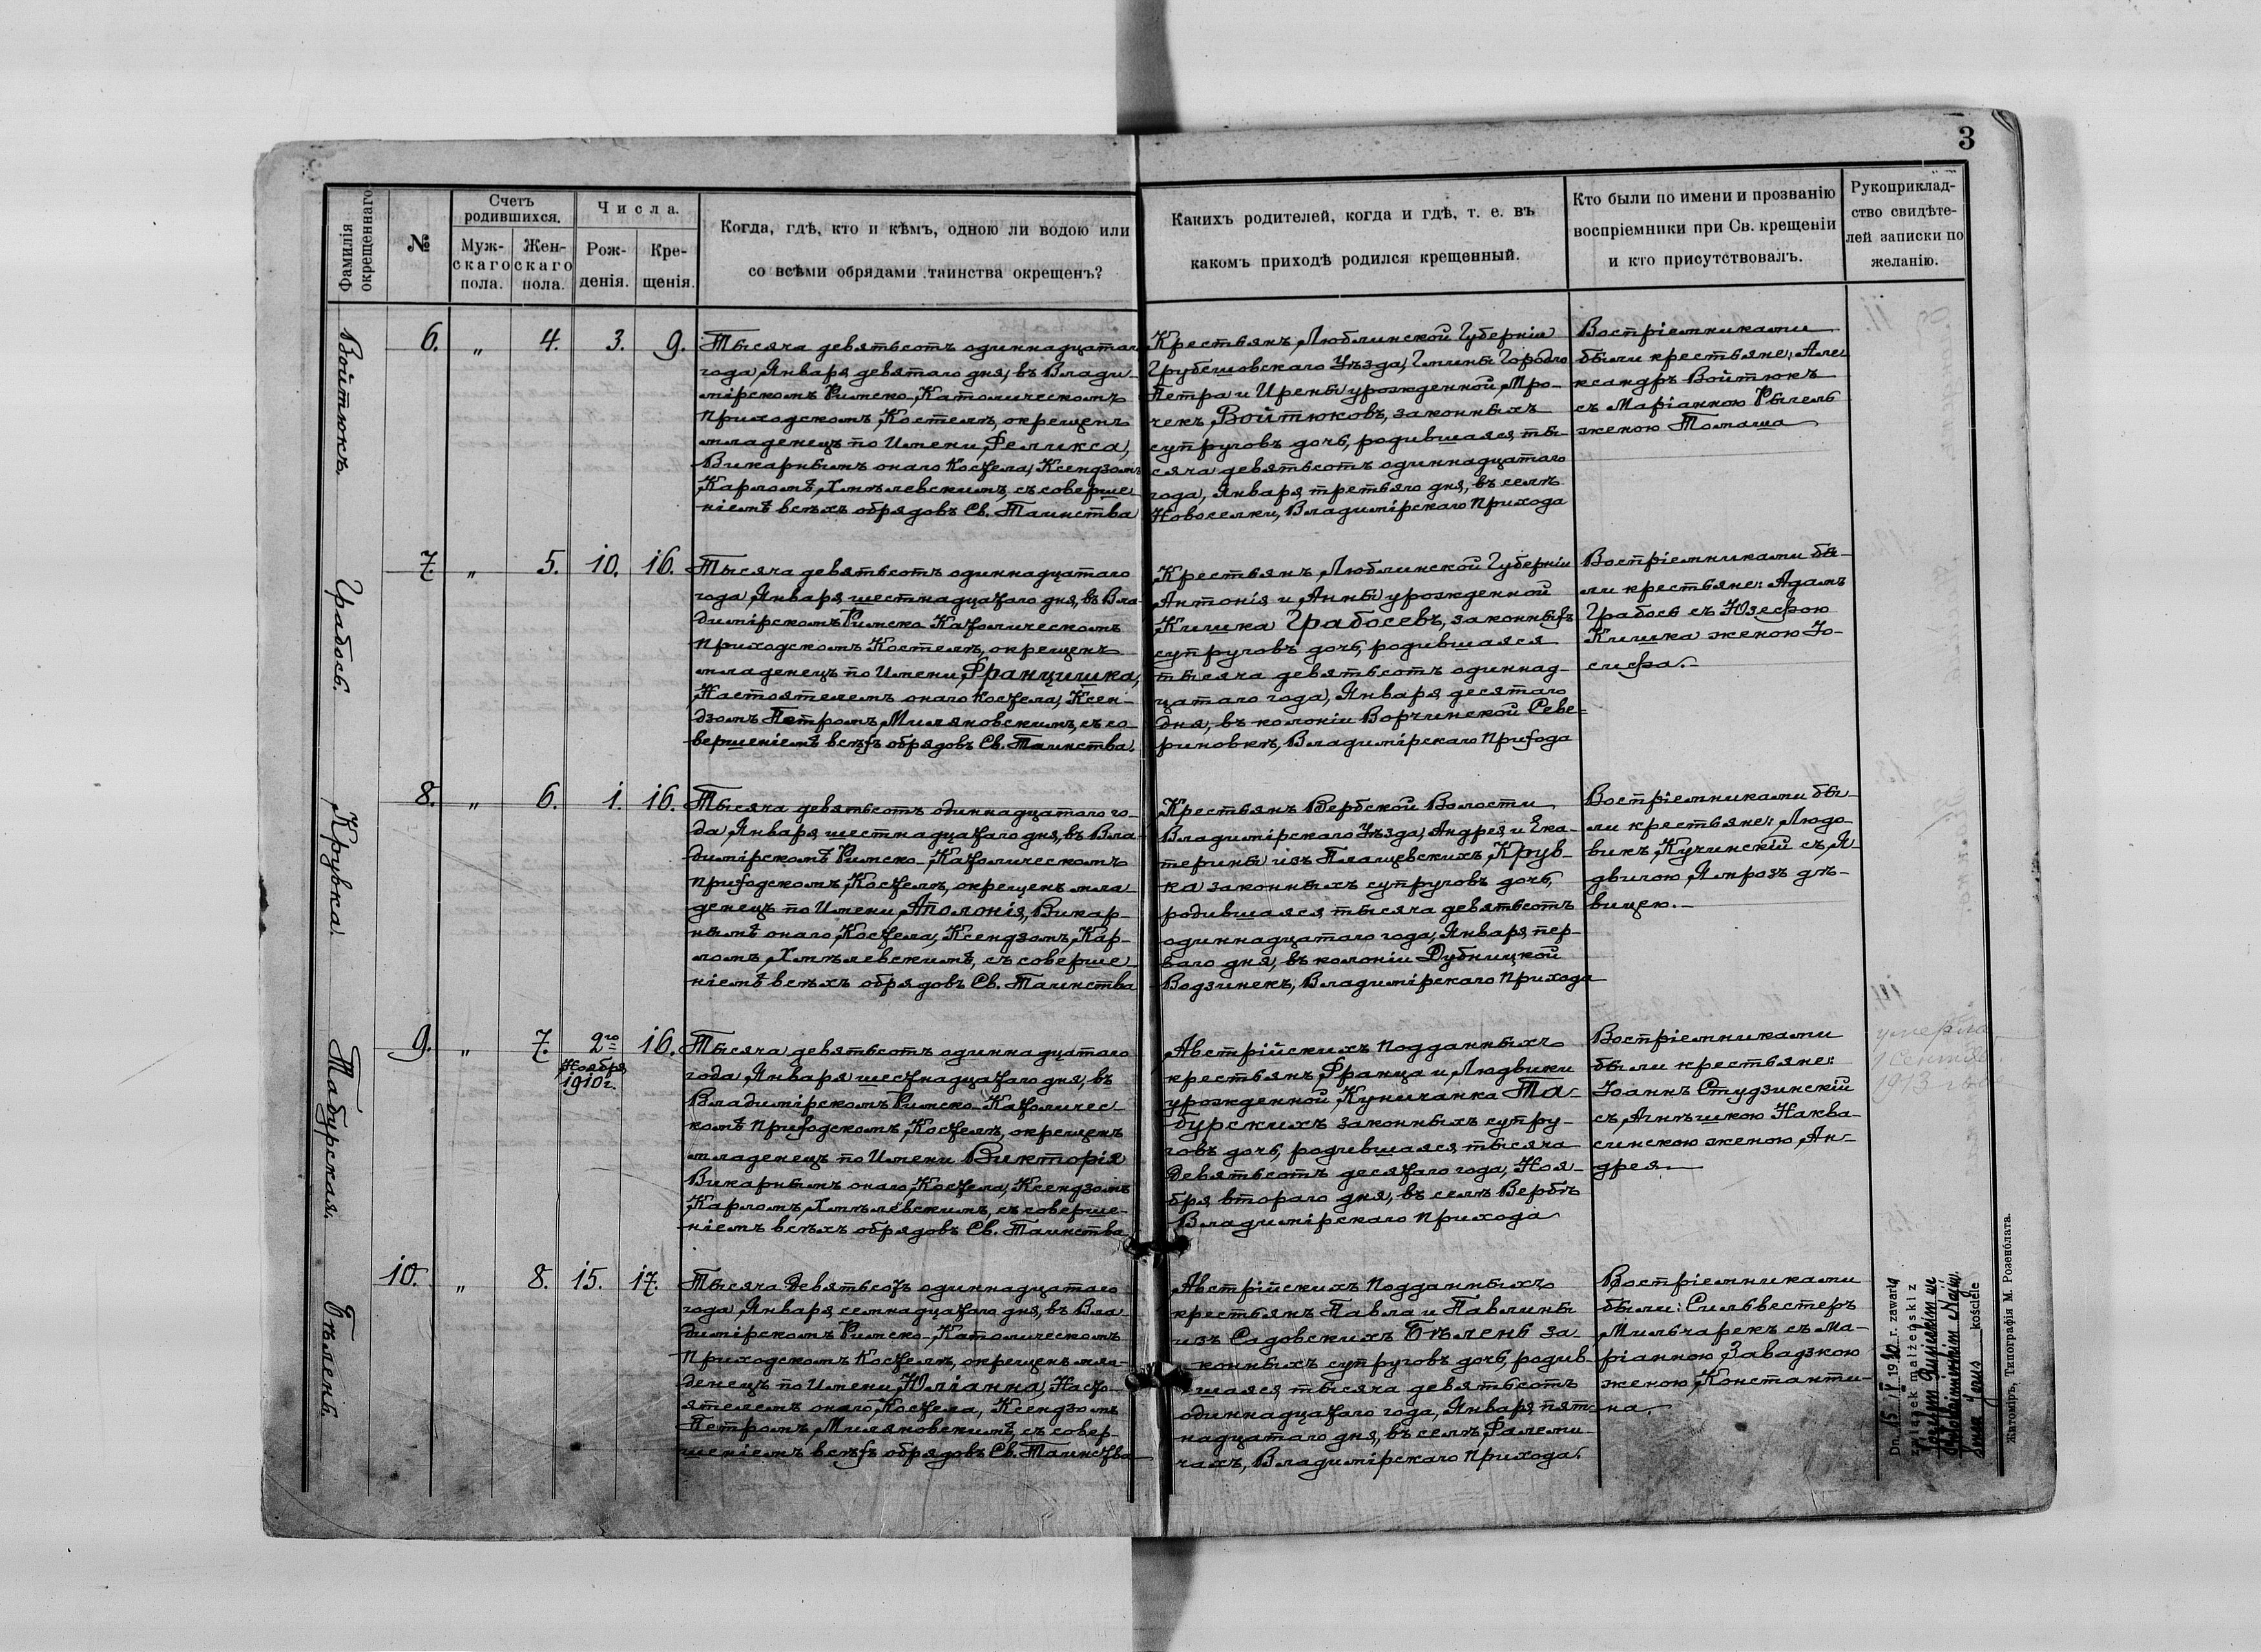 3
Фамилія
окрещеннаго
№
Счетъ
родившихся.
Муж-
скаго
пола.
Жен-
скаго
пола.
Числа.
Рож-
денія.
Кре-
щенія.
Когда, гдѣ, кто и кѣмъ, одною ли водою или
со всѣми обрядами таинства окрещенъ?
Какихъ родителей, когда и гдѣ, т. е. въ
какомъ приходѣ родился крещенный.
Кто были по имени и прозванію
воспріемники при Св. крещеніи
и кто присутствовалъ.
Рукоприклад-
ство свидѣте-
лей записки по
желанію.
Войтюкъ.
6. „ 4. 3. 9.
Тысяча девятьсотъ одиннадцатаго
года, Января девятаго дня, въ Влади-
мірскомъ Римско-Католическомъ
Приходскомъ Костелѣ, окрещенъ
младенецъ по Имени Феликса,
Викарнымъ онаго Костела, Ксендзомъ
Карломъ Хмѣлевскимъ, съ соверше-
ніемъ всѣхъ обрядовъ Св. Таинства
Крестьянъ Люблинской Губерніи
Грубешовскаго Уѣзда, Гмины Городло
Петра и Ирены урожденной Мро-
чекъ, Войтюковъ, законныхъ
супруговъ дочь, родившаяся ты-
сяча девятьсотъ одиннадцатаго
года, Января третьяго дня, въ селѣ
Новоселки, Владимірскаго Прихода
Воспріемниками
были крестьяне: Але-
ксандръ Войтюкъ
съ Маріанною Рыгель
женою Томаша
Грабось.
7. „ 5. 10. 16.
Тысяча девятьсотъ одиннадцатаго
года, Января шестнадцатаго дня, въ Вла-
димірскомъ Римско Католическомъ
Приходскомъ Костелѣ, окрещенъ
младенецъ по Имени Францишка,
Настоятелемъ онаго Костела, Ксен-
дзомъ Петромъ Миляновскимъ, съ со-
вершеніемъ всѣхъ обрядовъ Св. Таинства.
Крестьянъ Люблинской Губерніи
Антонія и Анны урожденной
Кишка Грабосевъ, законныхъ
супруговъ дочь, родившаяся
тысяча девятьсотъ одиннад-
цатаго года, Января десятаго
дня, въ колоніи Ворчинской Севе-
риновкѣ, Владимірскаго Прихода
Воспріемниками бы-
ли крестьяне: Адамъ
Грабось съ Юзефою
Кишка женою Іо-
сифа.
Крувка.
8. „ 6. 1. 16.
Тысяча девятьсотъ одиннадцатаго го-
да, Января шестнадцатаго дня, въ Вла-
димірскомъ Римско-Католическомъ
Приходскомъ Костелѣ, окрещенъ мла-
денецъ по Имени Аполонія, Викар-
нымъ онаго Костела, Ксендзомъ Кар-
ломъ Хмѣлевскимъ, съ соверше-
ніемъ всѣхъ обрядовъ Св. Таинства
Крестьянъ Вербской Волости
Владимірскаго Уѣзда, Андрея и Ека-
терины изъ Плащевскихъ Крув-
ка законныхъ супруговъ дочь,
родившаяся тысяча девятьсотъ
одиннадцатаго года, Января пер-
ваго дня, въ колоніи Дубницкой
Водзинекъ, Владимірскаго Прихода
Воспріемниками бы-
ли крестьяне: Людо-
викъ Кучинскій съ Я-
двигою Ямрозъ дѣ-
вицею.
Табурская.
9. „ 7. 2го Ноября 1910 г. 16.
Тысяча девятьсотъ одиннадцатаго
года, Января шестнадцатаго дня, въ
Владимірскомъ Римско-Католичес-
комъ Приходскомъ Костелѣ, окрещенъ
младенецъ по Имени Викторія
Викарнымъ онаго Костела, Ксендзомъ
Карломъ Хмѣлевскимъ, съ соверше-
ніемъ всѣхъ обрядовъ Св. Таинства
Австрійскихъ подданныхъ
крестьянъ Франца и Людвики
урожденной Куничанка Та-
бурскихъ законныхъ супру-
говъ дочь, родившаяся тысяча
девятьсотъ десятаго года, Ноя-
бря втораго дня, въ селѣ Вербѣ
Владимірскаго Прихода
Воспріемниками
были крестьяне:
Іоаннъ Студзинскій
съ Агнѣшкою Наква-
синскою женою Ан-
дрея.
умерла
1913
Бѣлень.
10. „ 8. 15. 17.
Тысяча девятьсотъ одиннадцатаго
года, Января семнадцатаго дня, въ Вла-
димірскомъ Римско-Католическомъ
Приходскомъ Костелѣ, окрещенъ мла-
денецъ по Имени Юліанна, Насто-
ятелемъ онаго Костела, Ксендзомъ
Петромъ Миляновскимъ, съ совер-
шеніемъ всѣхъ обрядовъ Св. Таинства
Австрійскихъ подданныхъ
крестьянъ Павла и Павлины
изъ Садовскихъ Бѣлень за-
конныхъ супруговъ дочь, родив-
шаяся тысяча девятьсотъ
одиннадцатаго года, Января пят-
надцатаго дня, въ селѣ Фалеми-
чахъ, Владимірскаго Прихода.
Воспріемниками
были: Сильвестеръ
Мильчарекъ съ Ма-
ріанною Завадзкою
женою Константи-
на.
Dn. 15 V 1930 r. zawarł
związek małżeński z
kościele
Житоміръ, Типографія М. Розенблата.